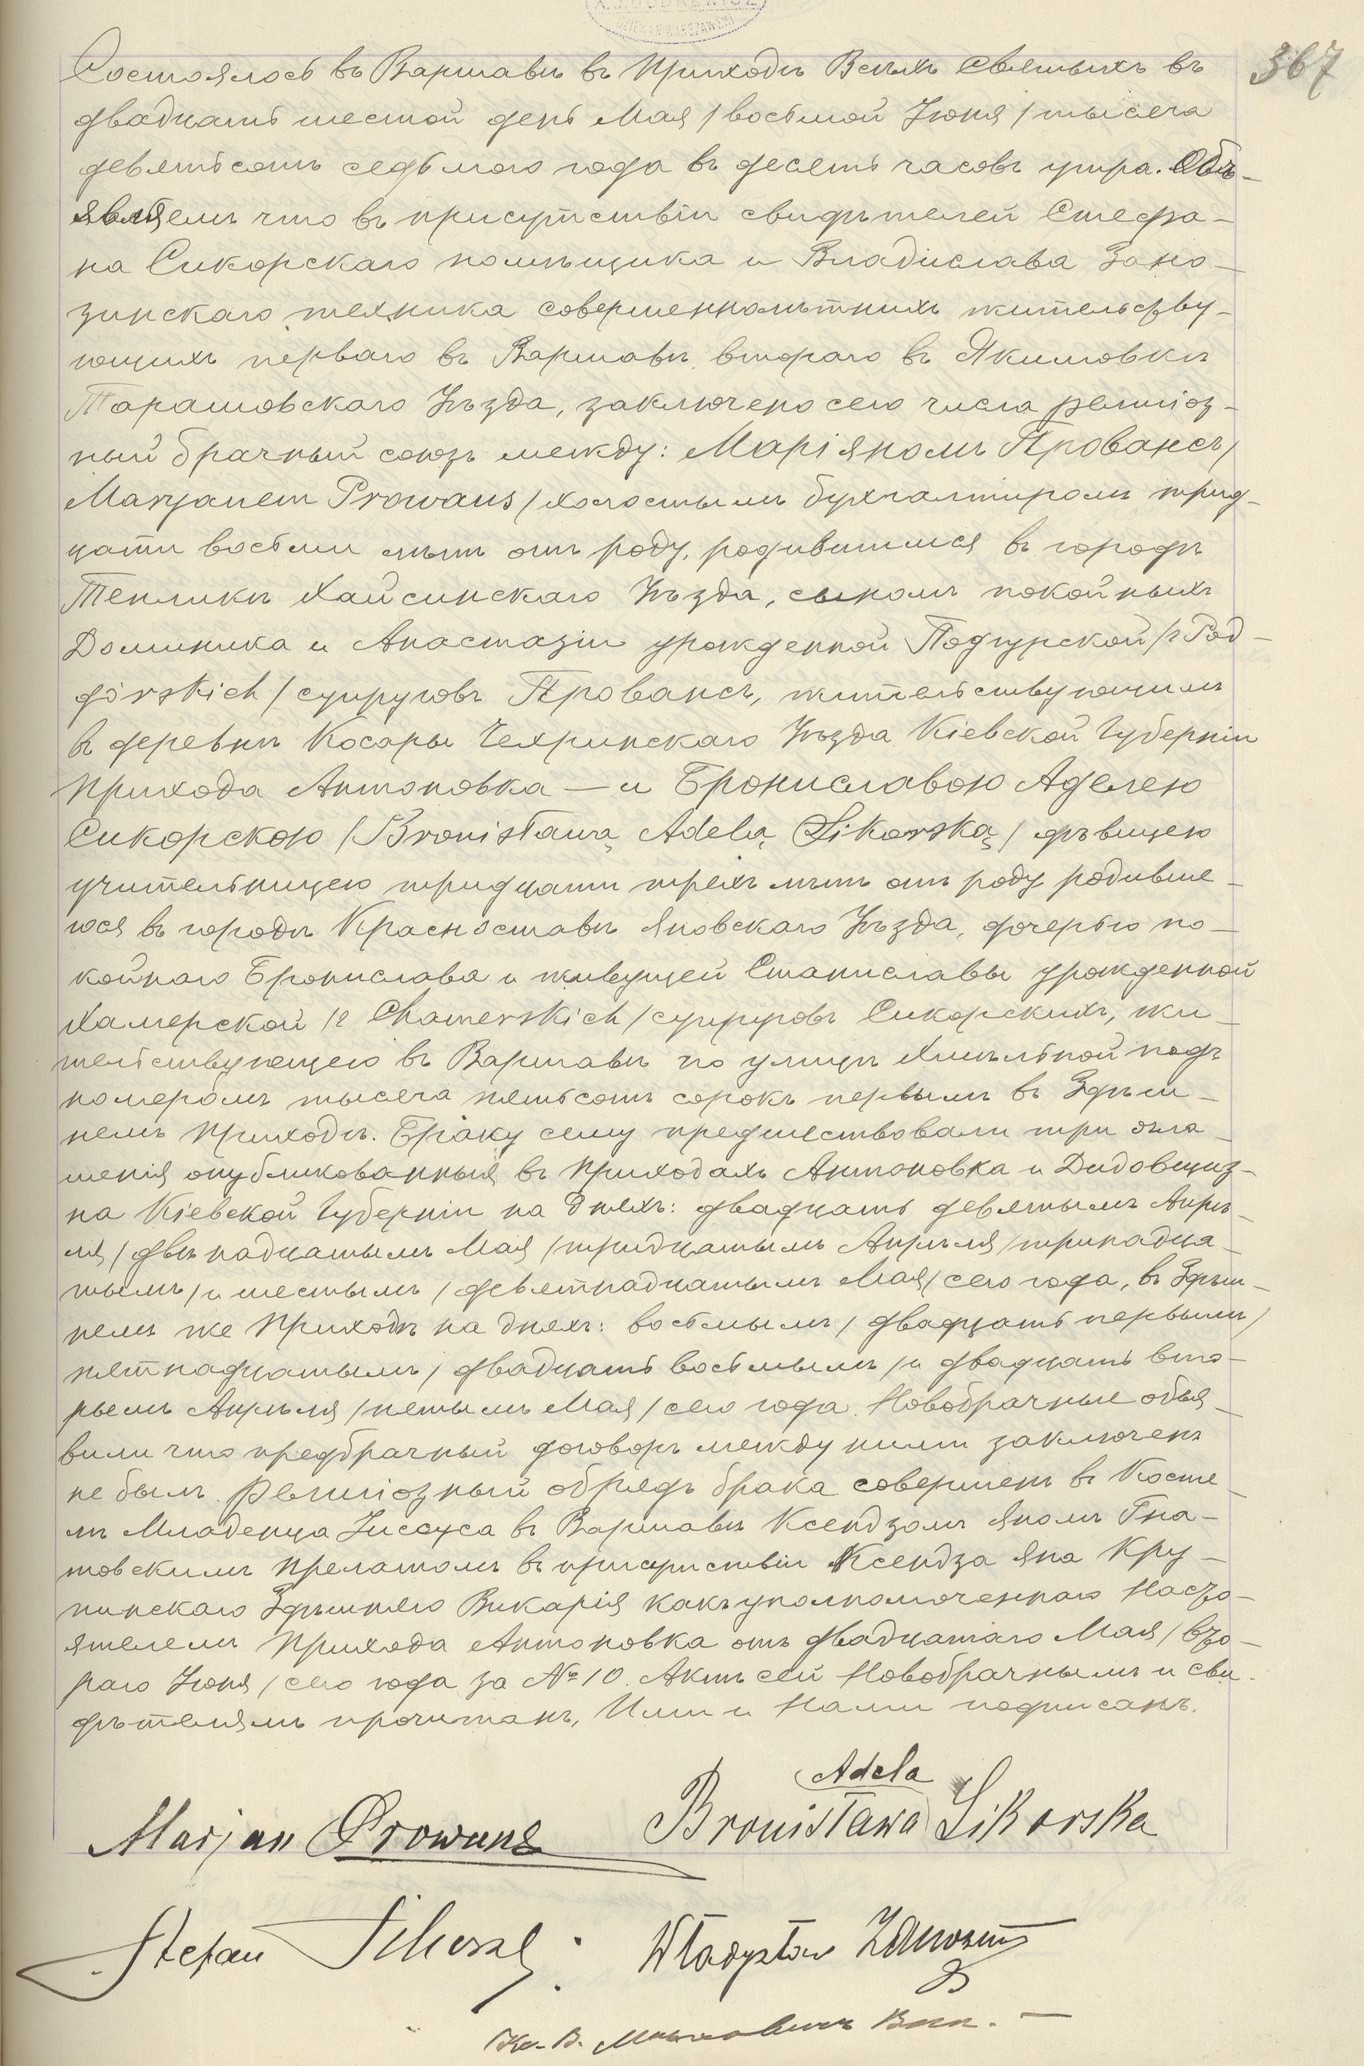 X. J. DUDREWICZ
DZIEKAN WARSZAWSKI
367
Состоялось въ Варшавѣ въ Приходѣ Всѣхъ Святыхъ въ
двадцать шестой день Мая /восьмой Іюня/ тысяча
девятьсотъ седьмого года въ десять часовъ утра. Объ-
являемъ что въ присутствіи свидѣтелей Стефа-
на Сикорскаго помѣщика и Владислава Зано-
зинскаго техника совершеннолѣтнихъ жительству-
ющихъ перваго въ Варшавѣ втораго въ Якимовкѣ
Таращовскаго Уѣзда, заключено сего числа религіоз-
ный брачный союзъ между: Маріяномъ Провансъ/
Maryanem Prowans/ холостымъ бухгалтеромъ трид-
цати восьми лѣтъ отъ роду, родившимся въ городѣ
Тепликѣ Хайсинскаго Уѣзда, сыномъ покойныхъ
Доминика и Анастазіи урожденной Подгурской /z Pod-
górskich/ супруговъ Провансъ, жительствующимъ
въ деревнѣ Косары Чехринскаго Уѣзда Кіевской Губерніи
Прихода Антоновка — и Брониславою Аделею
Сикорскою /Bronisławą Adelą Sikorską/ дѣвицею
учительницею тридцати трехъ лѣтъ отъ роду родивше-
юся въ городѣ Красноставѣ Яновскаго Уѣзда, дочерью по-
койнаго Бронислава и живущей Станиславы урожденной
Хамерской /z Chamerskich/ супруговъ Сикорскихъ, жи-
тельствующею въ Варшавѣ по улицѣ Хмѣльной подъ
номеромъ тысяча пятьсотъ сорокъ первымъ въ Здѣш-
немъ Приходѣ. Браку сему предшествовали три огла-
шенія опубликованныя въ Приходахъ Антоновка и Дидовщиз-
на Кіевской Губерніи на дняхъ: двадцать девятымъ Апрѣ-
ля /двѣнадцатымъ Мая/ тридцатымъ Апрѣля /тринадца-
тымъ/ и шестымъ /девятнадцатымъ Мая/ сего года, въ Здѣш-
немъ же Приходѣ на дняхъ: восьмымъ /двадцать первымъ/
пятнадцатымъ /двадцать восьмымъ/ и двадцать вто-
рымъ Апрѣля /пятымъ Мая/ сего года. Новобрачные объя-
вили что предбрачный договоръ между ними заключенъ
не былъ. Религіозный обрядъ брака совершенъ въ Косте-
лѣ Младенца Іисуса въ Варшавѣ Ксендзомъ Яномъ Гна-
товскимъ Прелатомъ въ присутствіи Ксендза Яна Кру-
пинскаго Здѣшняго Викарія какъ уполномоченнаго Насто-
ятелемъ Прихода Антоновка отъ двадцатаго Мая /вто-
раго Іюня/ сего года за № 10. Актъ сей Новобрачнымъ и сви-
дѣтелямъ прочитанъ, Ими и Нами подписанъ.
Adela
Marjan Prowans Bronisława Sikorska
Stefan Sikorski Władysław
Кс. В. Вик.